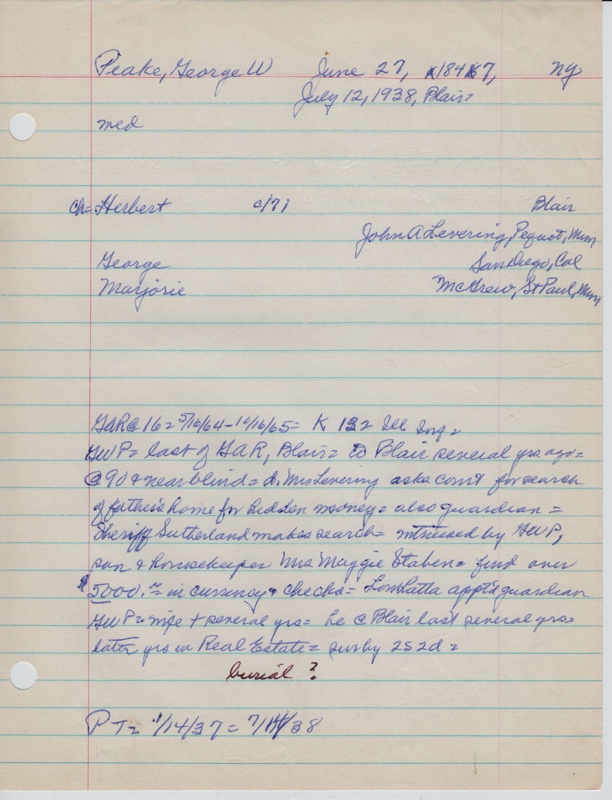 Peake, George W June 27, 1847, Ny
July 12, 1938, Blair=
med
ch= Herbert c/71 Blair
John A Levering, Pequot, Minn
George San Diego, Cal
Marjorie McGrew, St Paul, Minn
GAR @ 16 = 5/16/64 - 10/16/65 = K 132 Ill Inf =
GWP = last of GAR, Blair = to Blair several yrs ago =
@ 90 & near blind = d. Mrs Levering asks court for search
of father's home for hidden money = also guardian =
Sheriff Sutherland makes search = witnessed by GWP,
son & housekeeper Mrs Maggie Staben = find over
$5000.00 in currency & checks = Tom Latta appt'd guardian
GWP = wife + several yrs = he @ Blair last several yrs =
later yrs in Real Estate = sur by 2s 2d =
burial ?
PT = 1/14/37 = 7/14/38